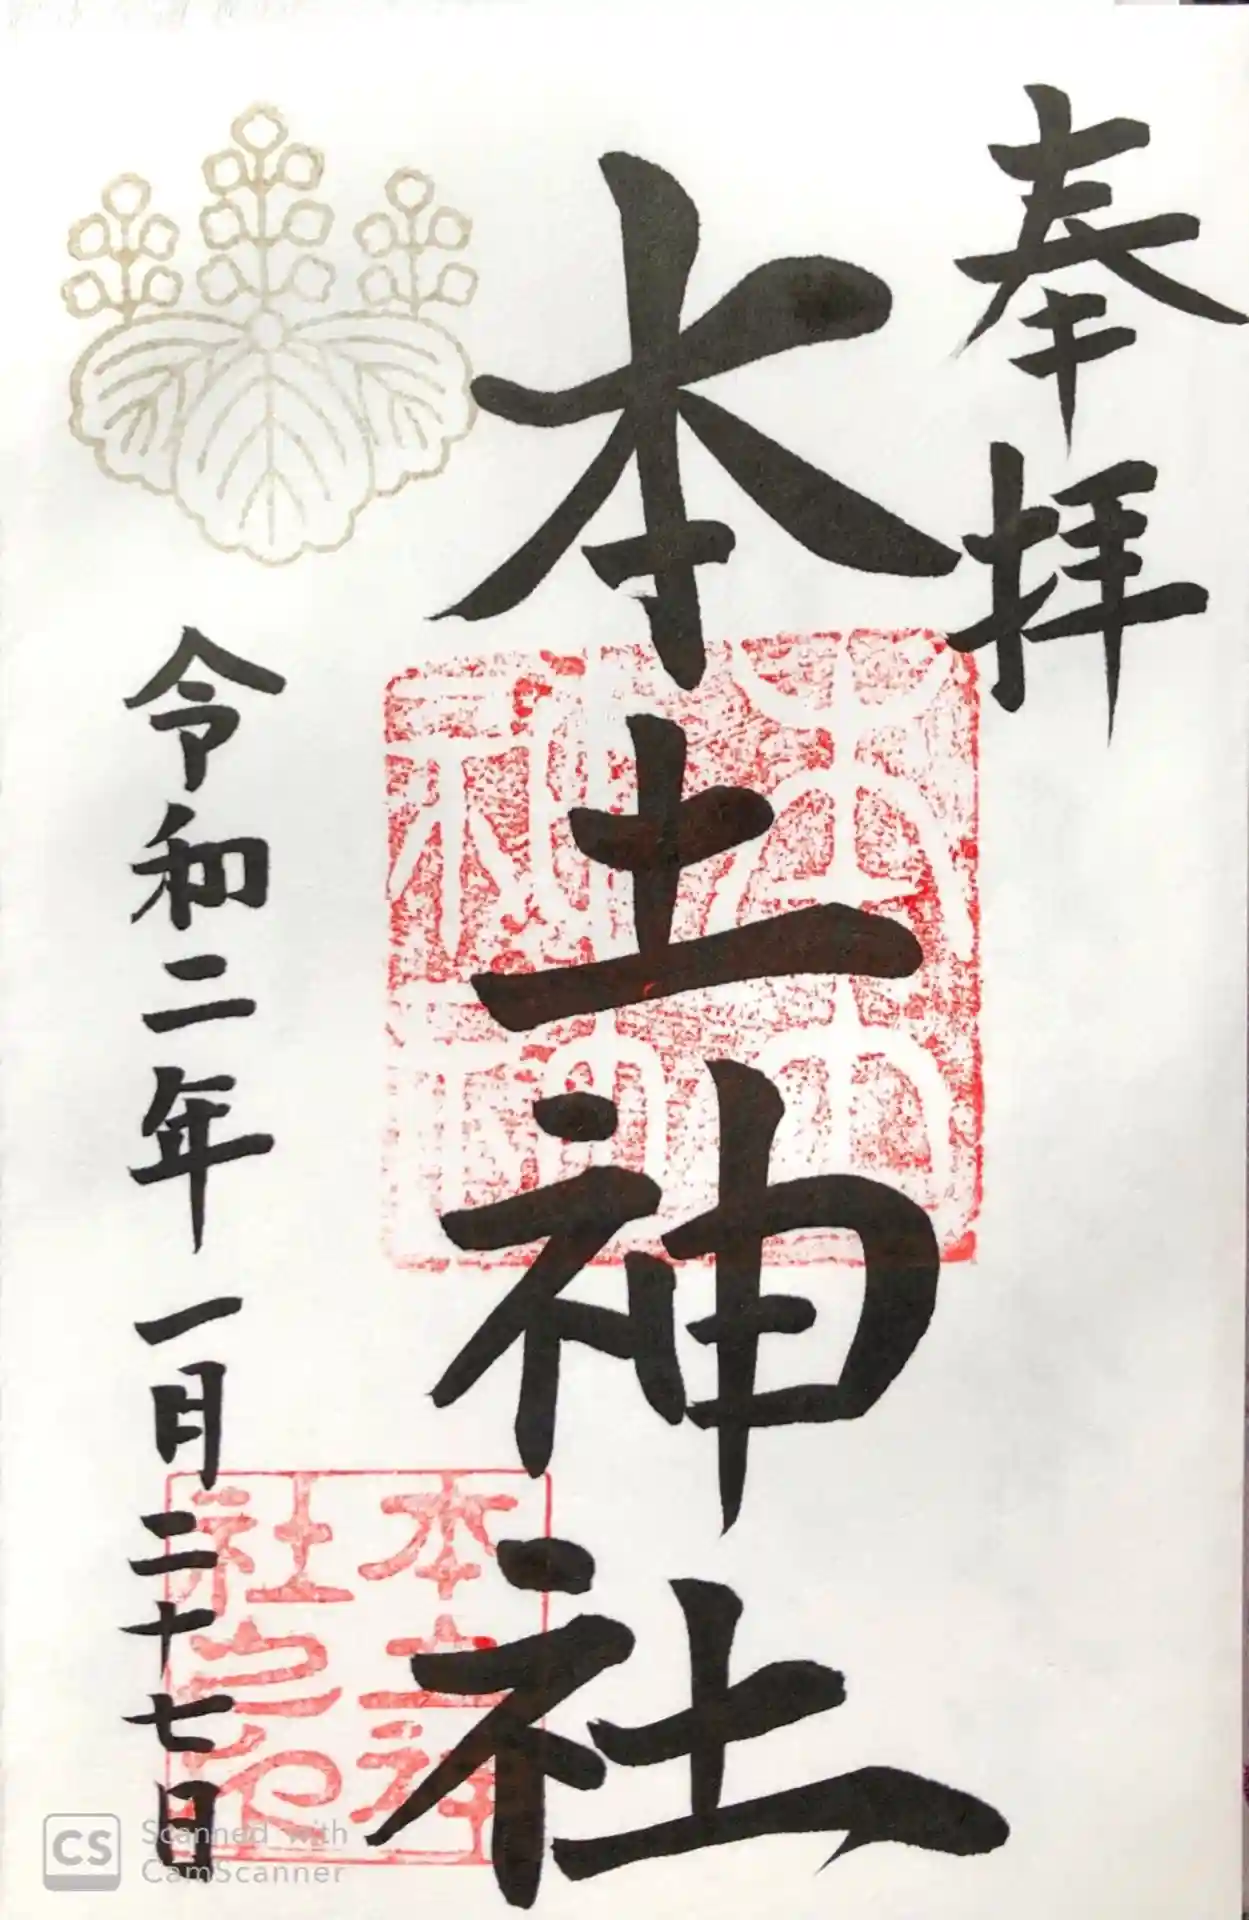 奉拝
本土神社
令和二年一月二十七日
本土神
社之印
CS Scanned with
CamScanner